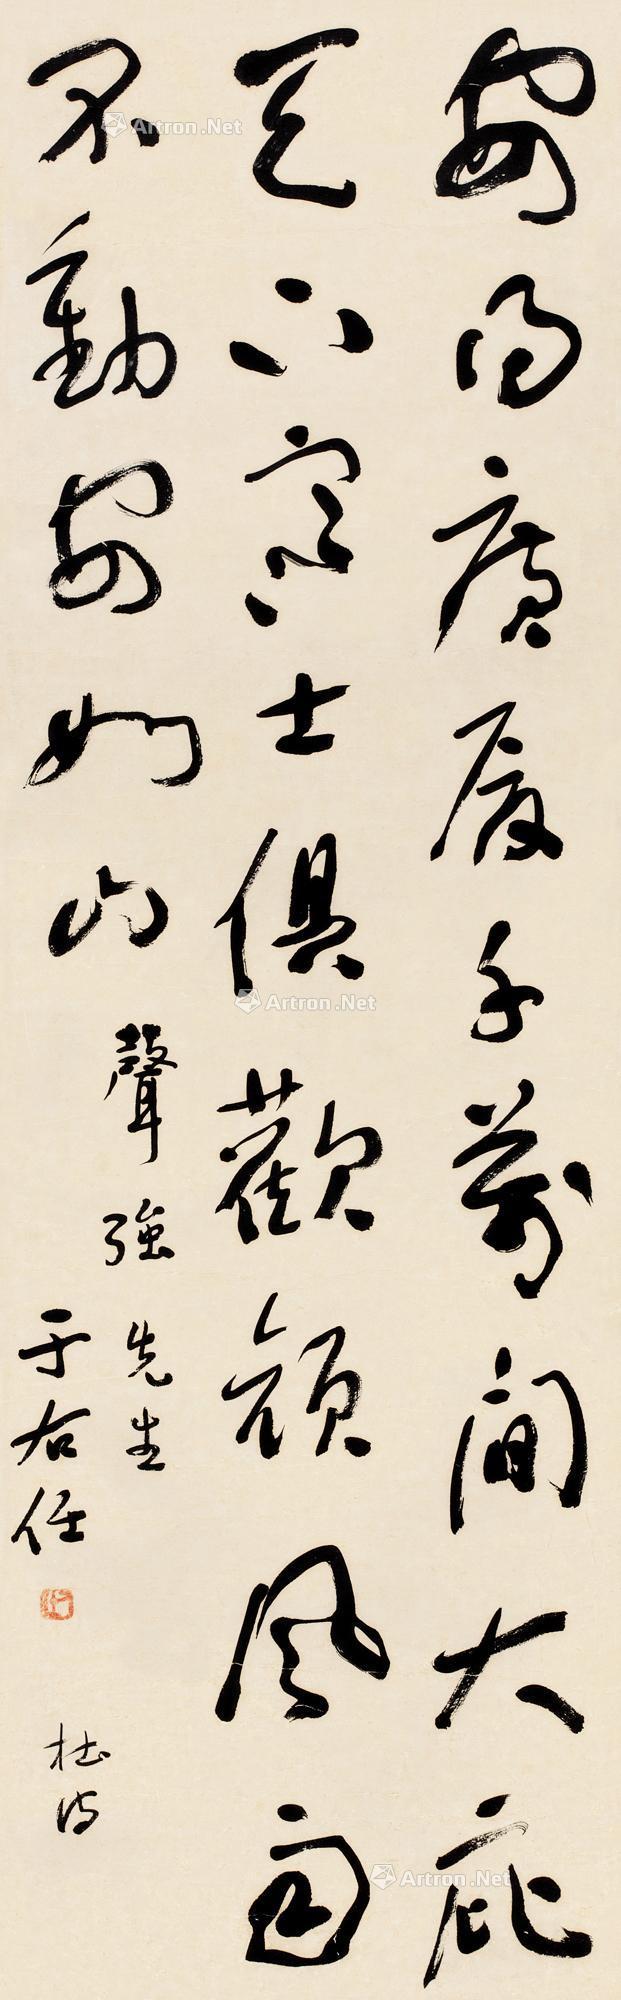 安得广厦千万間大庇
天下寒士俱歡顔風雨
不動安如山
聲強先生
于右任
杜诗
Artron.Net
Artron.Net
Artron.Net